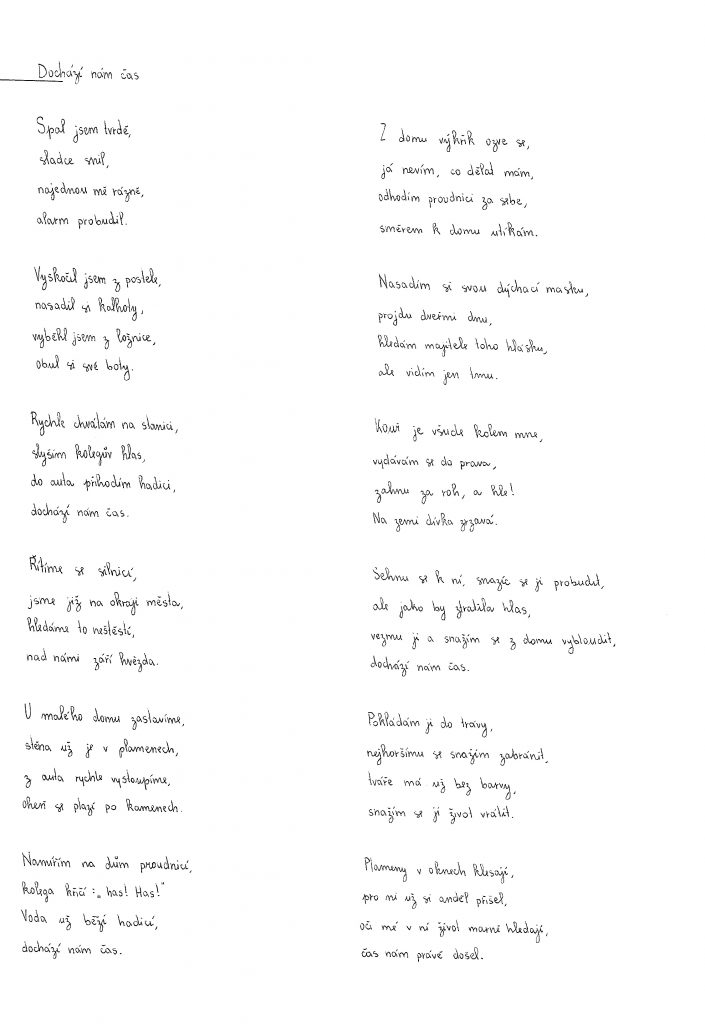 Dochází nám čas
Spal jsem tvrdě,
sladce snil,
najednou mě rázně,
alarm probudil.
Vyskočil jsem z postele,
nasadil si kalhoty,
vyběhl jsem z ložnice,
obul si své boty.
Rychle chvátám na stanici,
slyším kolegův hlas,
do auta přihodím hadici,
dochází nám čas.
Řítíme se silnicí,
jsme již na okraji města,
hledáme to neštěstí,
nad námi září hvězda.
U malého domu zastavíme,
stěna už je v plamenech,
z auta rychle vystoupíme,
oheň se plazí po kamenech.
Namířím na dům proudnicí,
kolega křičí: „has! Has!"
Voda už běží hadicí,
dochází nám čas.
Z domu výkřik ozve se,
já nevím, co dělat mám,
odhodím proudnici za sebe,
směrem k domu utíkám.
Nasadím si svou dýchací masku,
projdu dveřmi dnu,
hledám majitele toho hlásku,
ale vidím jen tmu.
Kouř je všude kolem mne,
vydávám se do prava,
zahnu za roh, a hle!
Na zemi dívka zrzavá.
Sehnu se k ní, snažíc se ji probudit,
ale jako by ztratila hlas,
vezmu ji a snažím se z domu vybloudit,
dochází nám čas.
Pokládám ji do trávy,
nejhoršímu se snažím zabránit,
tváře má už bez barvy,
snažím se jí život vrátit.
Plameny v oknech klesají,
pro ni už si anděl přišel,
oči mé v ní život marně hledají,
čas nám právě došel.